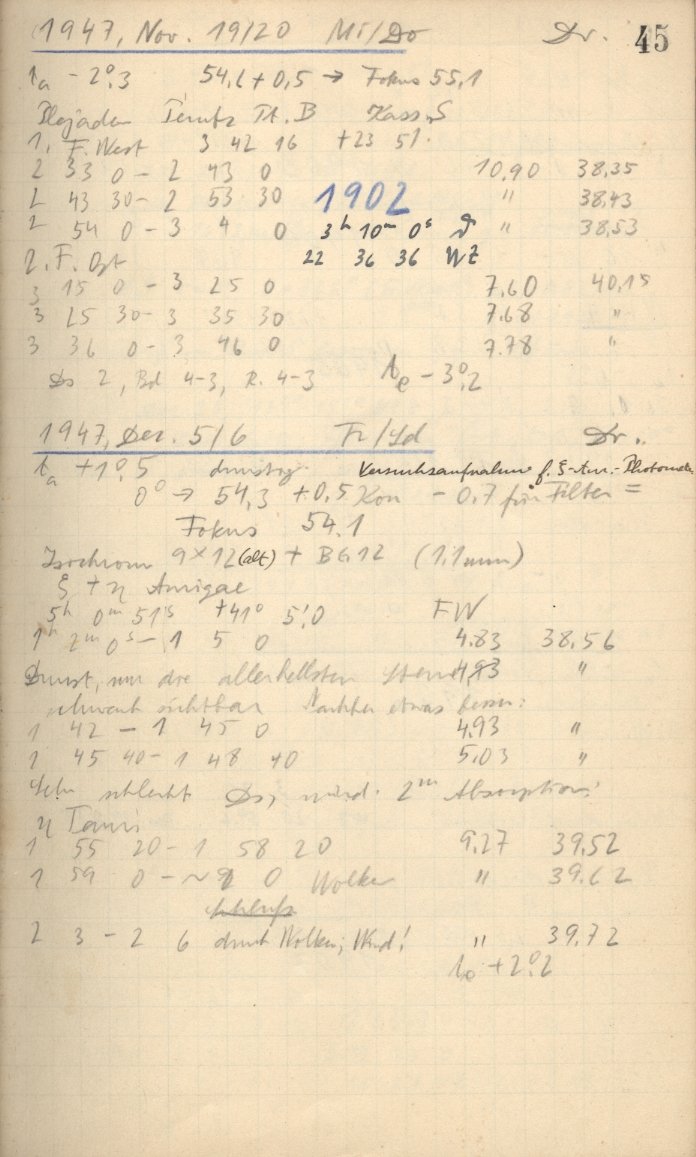 1947, Nov. 19/20 Mi/Do Dr. 45
ta - 2°,3 54,6 + 0,5 → Fokus 55,1
Plejaden Pl. B Kass. 5
1. F. West 3 42 16 +23 51.
2 33 0 - 2 43 0 10,90 38,35
2 43 30 - 2 53 30 1902 " 38,43
2 54 0 - 3 4 0 3h 10m 0s " 38,53
2. F. Ost 22 36 36 WZ
3 15 0 - 3 25 0 7,60 40,15
3 25 30 - 3 35 30 7.68 "
3 36 0 - 3 46 0 7.78 "
Ds 2, Bd 4-3, R. 4-3 te - 3°,2
1947, Dez. 5/6 Fr/Sd Dr.
ta +1°,5 dunstig. Versuchsaufnahme f. ζ-Aur.-Photometr.
0° → 54,3 + 0,5 Kon - 0.7 für Filter =
Fokus 54.1
Isochrom 9×12 (alt) + BG 12 (1,1mm)
ζ + η Aurigae
5h 0m 51s +41° 5',0 FW
1h 2m 0s - 1 5 0 4.83 38,56
Dunst, nur die allerhellsten Sterne 4,93 "
schwach sichtbar Nachher etwas besser:
1 42 - 1 45 0 4.93 "
1 45 40 - 1 48 40 5,03 "
Sehr schlecht Ds, mind. 2m Absorption!
η Tauri
1 55 20 - 1 58 20 9.27 39.52
1 59 0 - ~ 2 0 Wolken " 39.62
Schluß
2 3 - 2 6 durch Wolken; Wind! " 39.72
te +2°,2